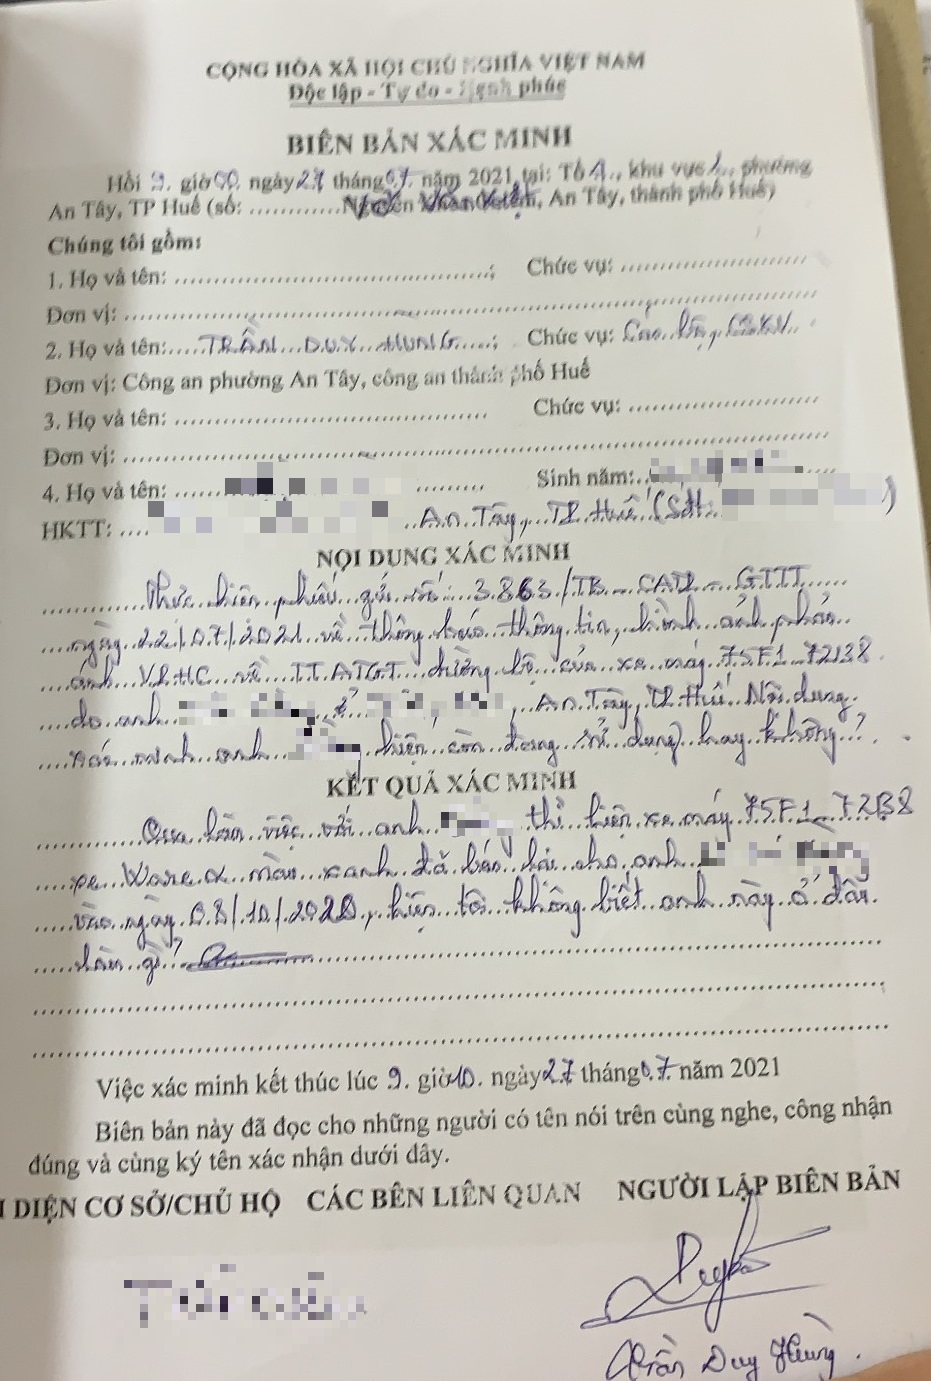 CỘNG HÒA XÃ HỘI CHỦ NGHĨA VIỆT NAM
Độc lập - Tự do - Hạnh phúc
BIÊN BẢN XÁC MINH
Hồi 9. giờ 00. ngày 27 tháng 07. năm 2021 tại: Tổ 4., khu vực 1., phường
An Tây, TP Huế (số: ............ An Tây, thành phố Huế)
Chúng tôi gồm:
1. Họ và tên: ..............................; Chức vụ: ..............................
Đơn vị: ..............................
2. Họ và tên:.....TRẦN...DUY...HÙNG......; Chức vụ:
Đơn vị: Công an phường An Tây, công an thành phố Huế
3. Họ và tên: .............................. Chức vụ: ..............................
Đơn vị: ..............................
4. Họ và tên: ...... Sinh năm:..
HKTT: .... An. Tây, TP. Huế (Sđt:
NỘI DUNG XÁC MINH
Thực hiện phiếu gửi số: 3863/TB-CAQ-GTTT
ngày 22/07/2021 về thông báo thông tin, hình ảnh phản
ánh VPHC về TTATGT đường bộ của xe máy 75F1-72138
do anh ở An Tây, TP Huế. Nội dung
xác minh anh hiện còn đang sử dụng hay không?
KẾT QUẢ XÁC MINH
Qua làm việc với anh thì hiện xe máy 75F1-
xe Wave α màu xanh đã bán lại cho anh
vào ngày 08/10/2020, hiện tôi không biết anh này ở đâu
làm gì?
Việc xác minh kết thúc lúc 9. giờ 10. ngày 27 tháng 07. năm 2021
Biên bản này đã đọc cho những người có tên nói trên cùng nghe, công nhận
đúng và cùng ký tên xác nhận dưới đây.
I DIỆN CƠ SỞ/CHỦ HỘ CÁC BÊN LIÊN QUAN NGƯỜI LẬP BIÊN BẢN
Trần Duy Hùng.